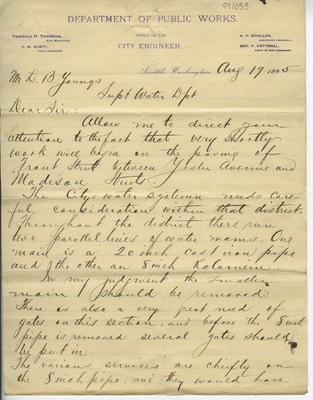 991033
DEPARTMENT OF PUBLIC WORKS.
OFFICE OF THE
CITY ENGINEER.
REGINALD H. THOMSON,
A. V. BOUILLON,
H. W. SCOTT,
GEO. F. COTTERILL,
Seattle, Washington Aug 19 1895
Mr L. B Youngs
Supt Water Dpt
Dear Sir:
Allow me to direct your
attention to the fact that very shortly
work will begin on the paving of
Front Street between Yesler Avenue and
Madison Streets.
The City water systems needs care-
ful consideration within that district.
Throughout the district there run
two parallel lines of water mains. One
main is a 20 inch cast iron pipe
and the other an 8 inch Kalamein.
In my judgment the smaller
main should be removed
There is also a very great need of
gates on this section, and before the 8 inch
pipe is removed several gates should
be put in.
The various services are chiefly on
the 8 inch pipe, and they would have